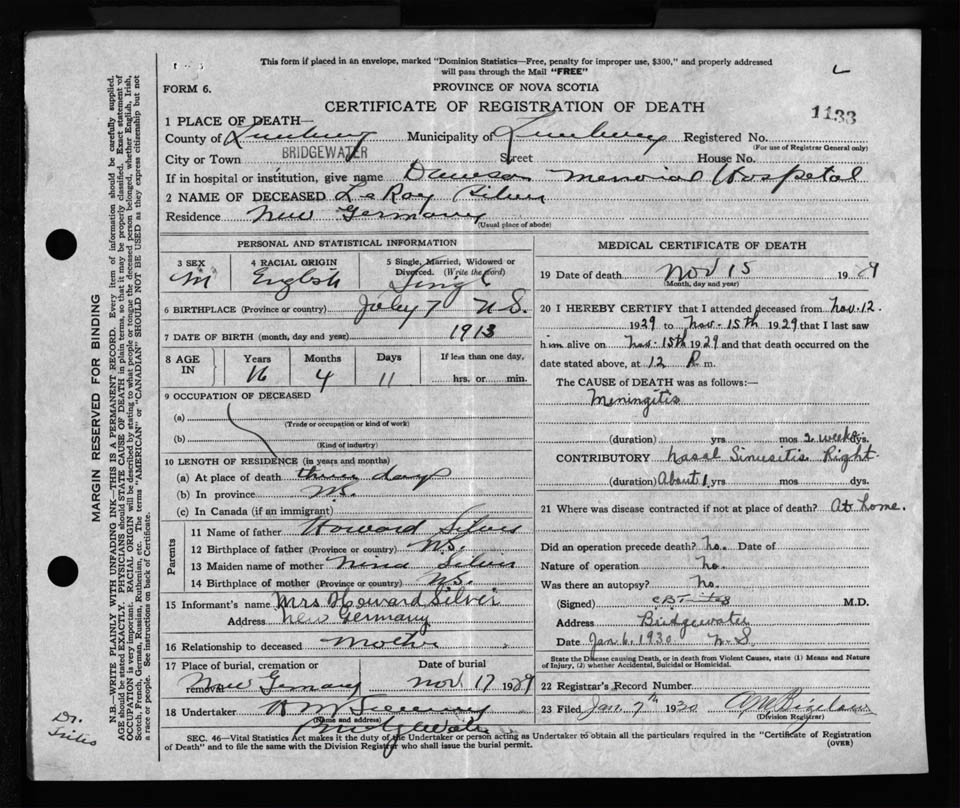 This form if placed in an envelope, marked "Dominion Statistics—Free, penalty for improper use, $300," and properly addressed
will pass through the Mail "FREE"
FORM 6.
PROVINCE OF NOVA SCOTIA
CERTIFICATE OF REGISTRATION OF DEATH
1133
1 PLACE OF DEATH—
County of Lunenburg Municipality of Lunenburg Registered No.
(For use of Registrar General only)
City or Town BRIDGEWATER Street House No.
If in hospital or institution, give name Dawson Memorial Hospital
2 NAME OF DECEASED LeRoy Silver
Residence New Germany
(Usual place of abode)
PERSONAL AND STATISTICAL INFORMATION
3 SEX M
4 RACIAL ORIGIN English
5 Single, Married, Widowed or Divorced. (Write the word) Single
6 BIRTHPLACE (Province or country) N.S.
7 DATE OF BIRTH (month, day and year) July 7 1913
8 AGE IN Years Months Days If less than one day,
16 4 11 hrs. or min.
9 OCCUPATION OF DECEASED
(a)
(Trade or occupation or kind of work)
(b)
(Kind of industry)
10 LENGTH OF RESIDENCE (in years and months)
(a) At place of death three days
(b) In province
(c) In Canada (if an immigrant)
Parents
11 Name of father Howard Silver
12 Birthplace of father (Province or country) N.S.
13 Maiden name of mother Nina Silver
14 Birthplace of mother (Province or country) N.S.
15 Informant's name Mrs. Howard Silver
Address New Germany
16 Relationship to deceased Mother
17 Place of burial, cremation or removal Date of burial
New Germany Nov 17 1929
18 Undertaker
(Name and address)
Bridgewater
MEDICAL CERTIFICATE OF DEATH
19 Date of death Nov 15 1929
(Month, day and year)
20 I HEREBY CERTIFY that I attended deceased from Nov. 12
1929 to Nov. 15th 1929 that I last saw
him alive on Nov. 15th 1929 and that death occurred on the
date stated above, at 12 P. m.
The CAUSE OF DEATH was as follows:—
Meningitis
(duration) yrs mos 2 weeks dys.
CONTRIBUTORY Nasal Sinusitis Right
(duration) About 1 yrs. mos dys.
21 Where was disease contracted if not at place of death? At home.
Did an operation precede death? No. Date of
Nature of operation No.
Was there an autopsy? No.
(Signed) M.D.
Address Bridgewater
Date Jan 6, 1930 N.S
State the Disease causing Death, or in death from Violent Causes, state (1) Means and Nature
of Injury, (2) whether Accidental, Suicidal or Homicidal.
22 Registrar's Record Number
23 Filed Jan 7th 1930
(Division Registrar)
SEC. 46—Vital Statistics Act makes it the duty of the Undertaker or person acting as Undertaker to obtain all the particulars required in the "Certificate of Registration
of Death" and to file the same with the Division Registrar who shall issue the burial permit.
(OVER)
MARGIN RESERVED FOR BINDING
N.B.—WRITE PLAINLY WITH UNFADING INK—THIS IS A PERMANENT RECORD. Every item of information should be carefully supplied.
AGE should be stated EXACTLY. PHYSICIANS should STATE CAUSE OF DEATH in plain terms, so that it may be properly classified. Exact statement of
OCCUPATION is very important. RACIAL ORIGIN will be described by stating to what people or tongue the deceased person belonged, whether English, Irish,
Scotch, French, German, Russian, Ruthenian, etc. The terms "AMERICAN" or "CANADIAN" SHOULD NOT BE USED as they express citizenship but not
a race or people. See instructions on back of Certificate.
Dr.